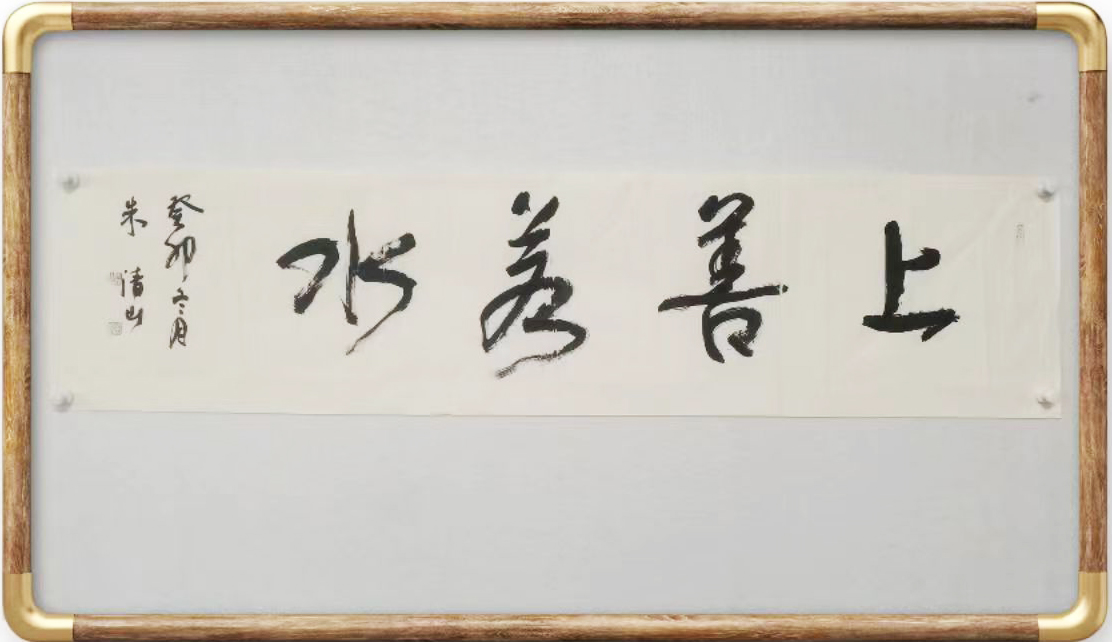 上善若水
癸卯冬月
朱清山